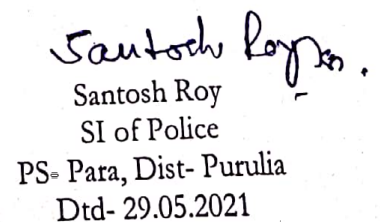 Santosh Roy
Santosh Roy
SI of Police
PS- Para, Dist- Purulia
Dtd- 29.05.2021